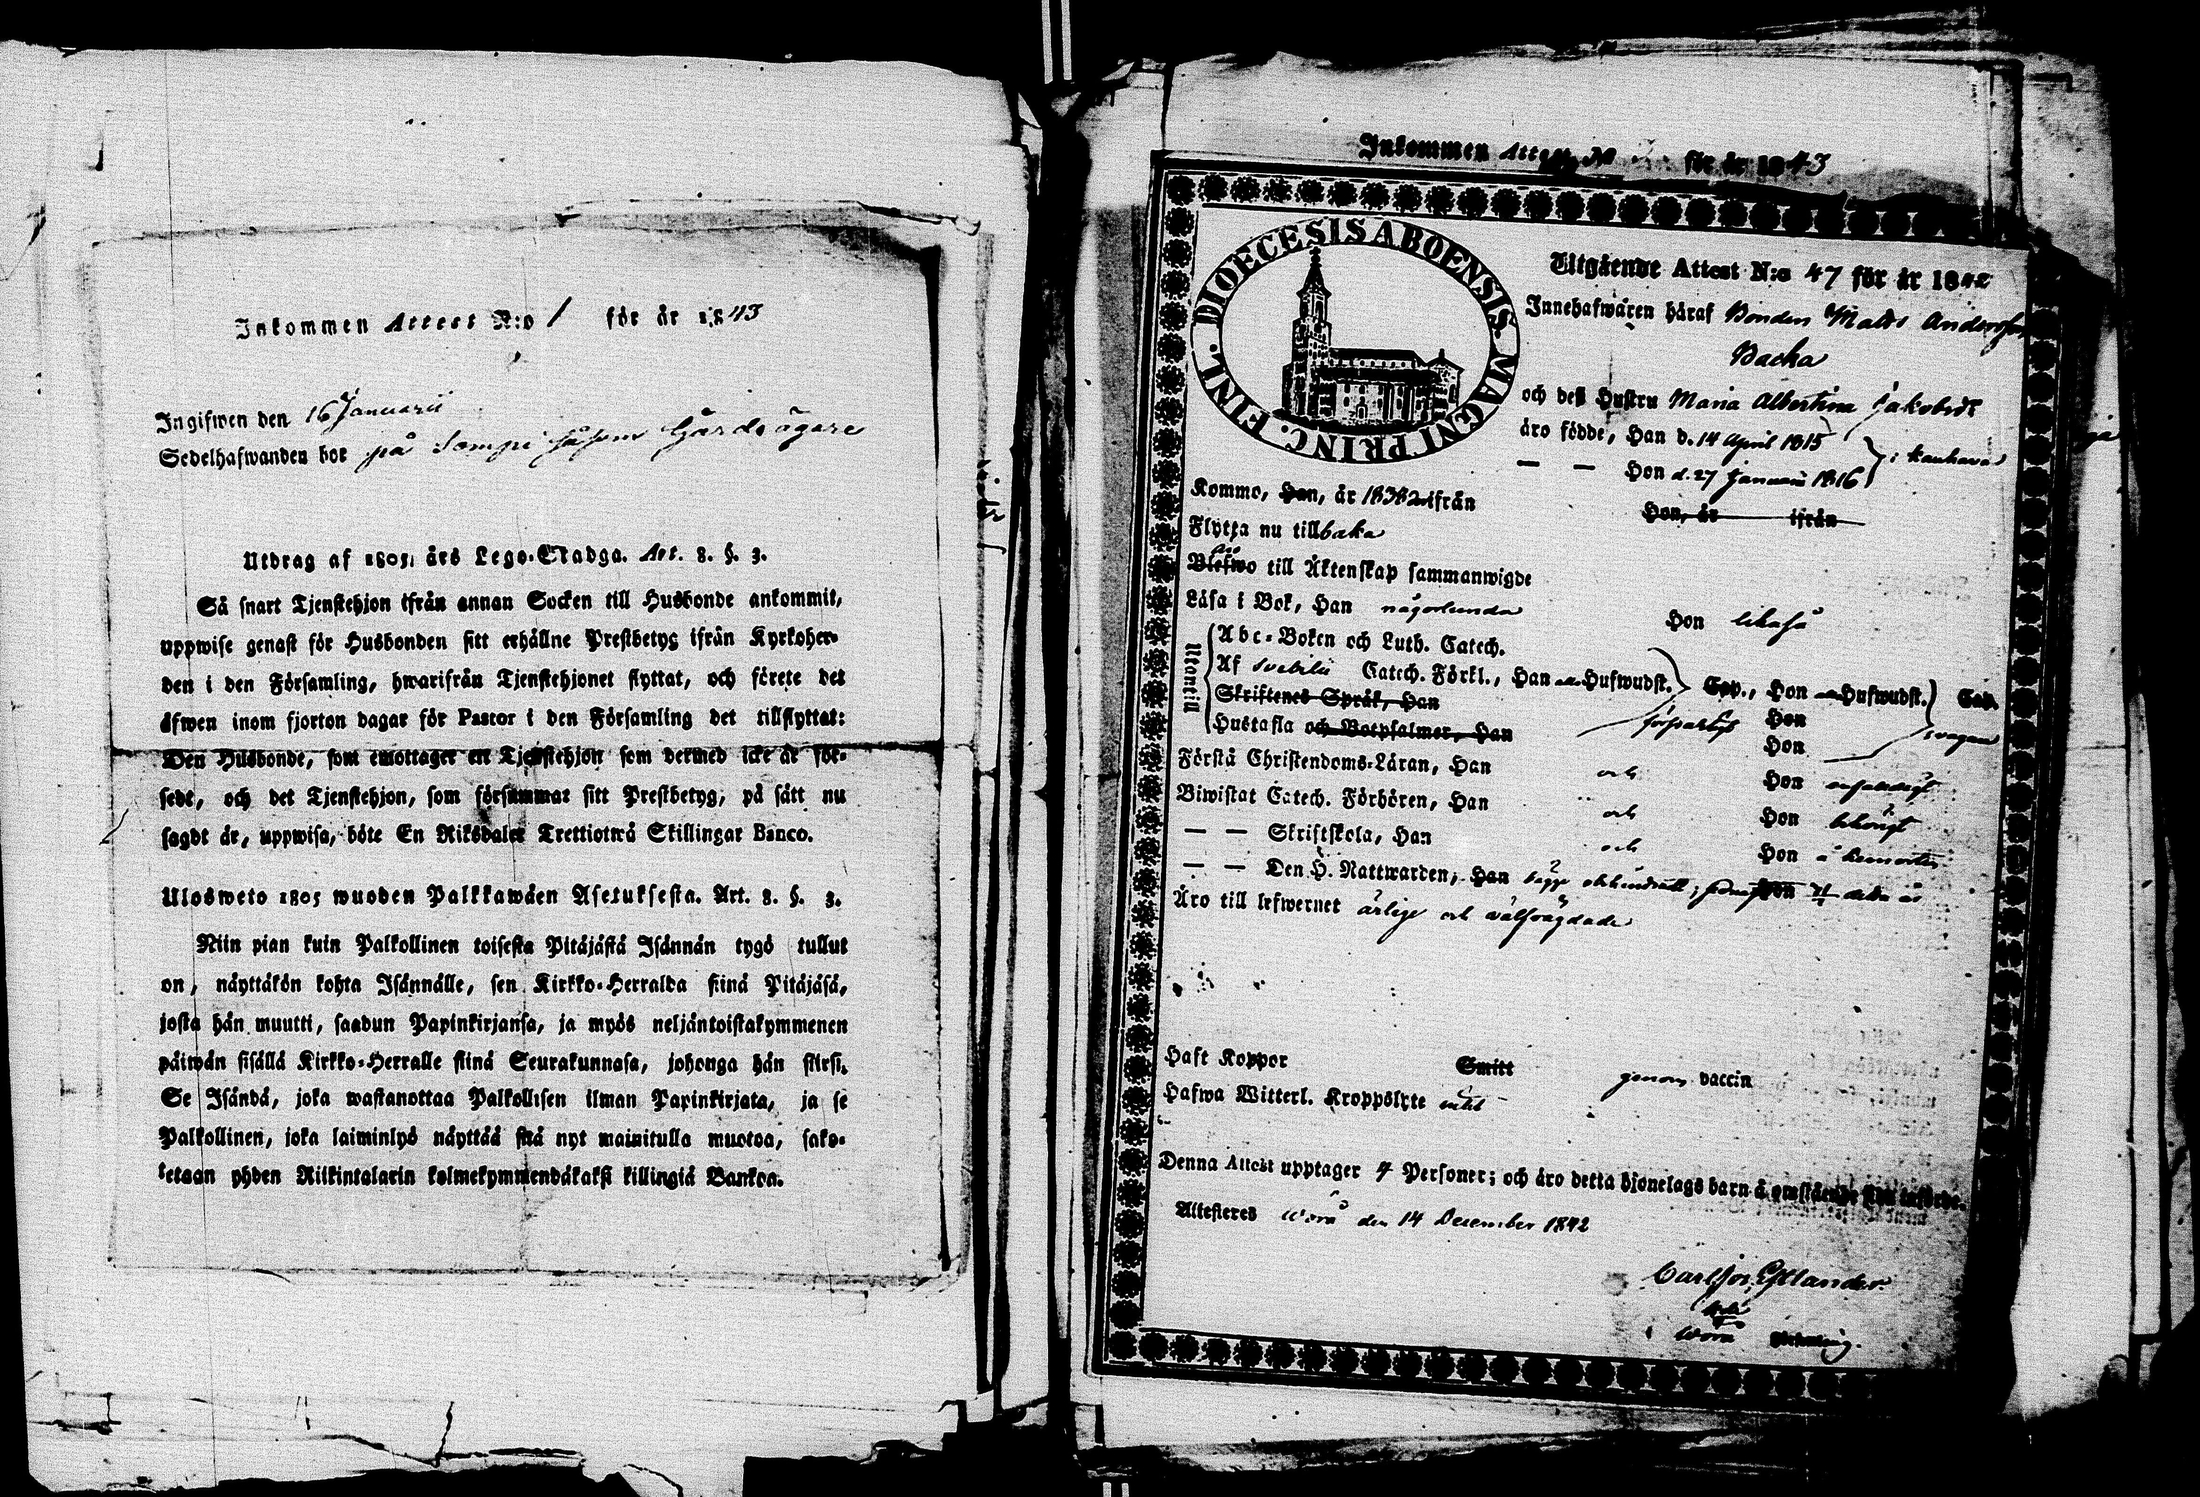 Inkommen Attest N:o 1 för år 1843
Ingifwen den 16 Januarii
Sedelhafwanden bor på Lampi såsom Gårdsägare
Utdrag af 1805 års Lego-Stadga. Art. 8. §. 3.
Så snart Tjenstehjon ifrån annan Socken till Husbonde ankommit,
uppwise genast för Husbonden sitt erhållne Prestbetyg ifrån Kyrkoher-
den i den Församling, hwarifrån Tjenstehjonet flyttat, och förete det
äfwen inom fjorton dagar för Pastor i den Församling det tillflyttat:
Den Husbonde, som emottager ett Tjenstehjon som dermed icke är för-
sedt, och det Tjenstehjon, som försummar sitt Prestbetyg, på sätt nu
sagdt är, uppwisa, böte En Riksdaler Trettiotwå Skillingar Banco.
Ulosweto 1805 wuoden Palkkawäen Asetuksesta. Art. 8. §. 3.
Niin pian kuin Palkollinen toisesta Pitäjästä Isännän tygö tullut
on, näyttäkön kohta Isännälle, sen Kirkko-Herralda siinä Pitäjäsä,
josta hän muutti, saadun Papinkirjansa, ja myös neljäntoistakymmenen
päiwän sisällä Kirkko-Herralle siinä Seurakunnasa, johonga hän siirsi.
Se Isändä, joka wastanottaa Palkollisen ilman Papinkirjata, ja se
Palkollinen, joka laiminlyö näyttää sitä nyt mainitulla muotoa, sako-
tetaan yhden Riikintalarin kolmekymmendäkaksi killingiä Bankoa.
Inkommen Attest N för år 1843
DIOECESIS ABOENSIS MAGNI PRINC. FINL.
Utgående Attest N:o 47 för år 1842
Innehafwaren häraf Bonden Matts Andersson
Backa
och deß Hustru Maria Albertina Jakobsdr
äro födde, Han d. 14 April 1815
— — Hon d. 27 Januarii 1816 } i Kauhava
Kommo, Han, år 1838 ifrån
Hon, år ifrån
Flytta nu tillbaka
äro
Blefwo till Äktenskap sammanwigde
Läsa i Bok, Han någorlunda Hon likaså
Utantill
Abc-Boken och Luth. Catech.
Af Svebilii Catech. Förkl., Han alla Hufwudst. Cap., Hon alla Hufwudst. Cap.
Skriftenes Språk, Han Hon
Hustafla och Botpsalmer, Han Hon svagare
Förstå Christendoms-Läran, Han och Hon enfaldigt
Biwistat Catech. Förhören, Han och Hon behörigt
— — Skriftskola, Han och Hon å hemorten
— — Den H. Nattwarden, Han Hon
Äro till lefwernet ärlige och välfrägdade
Haft Koppor Smitt genom vaccin
Hafwa Witterl. Kroppslyte intet
Denna Attest upptager 4 Personer; och äro detta hjonelags barn å omstående
Attesteres Wörå den 14 December 1842
Wörå